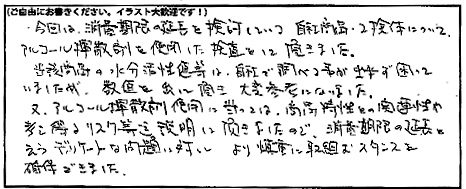 (ご自由にお書きください。イラスト大歓迎です!)
・今回は、消費期限の延長を検討していて 自社商品・2検体について、
アルコール揮散剤を使用した検査をして頂きました。
当該商品の水分活性値等は、自社で調べる事が出来ず困って
いましたが、数値を出して頂き大変参考になりました。
又、アルコール揮散剤使用に当っては、商品特性との関連性や
考え得るリスク等を説明して頂きましたので、消費期限の延長と
いうデリケートな問題に対し より慎重に取組むスタンスを
確保できました。